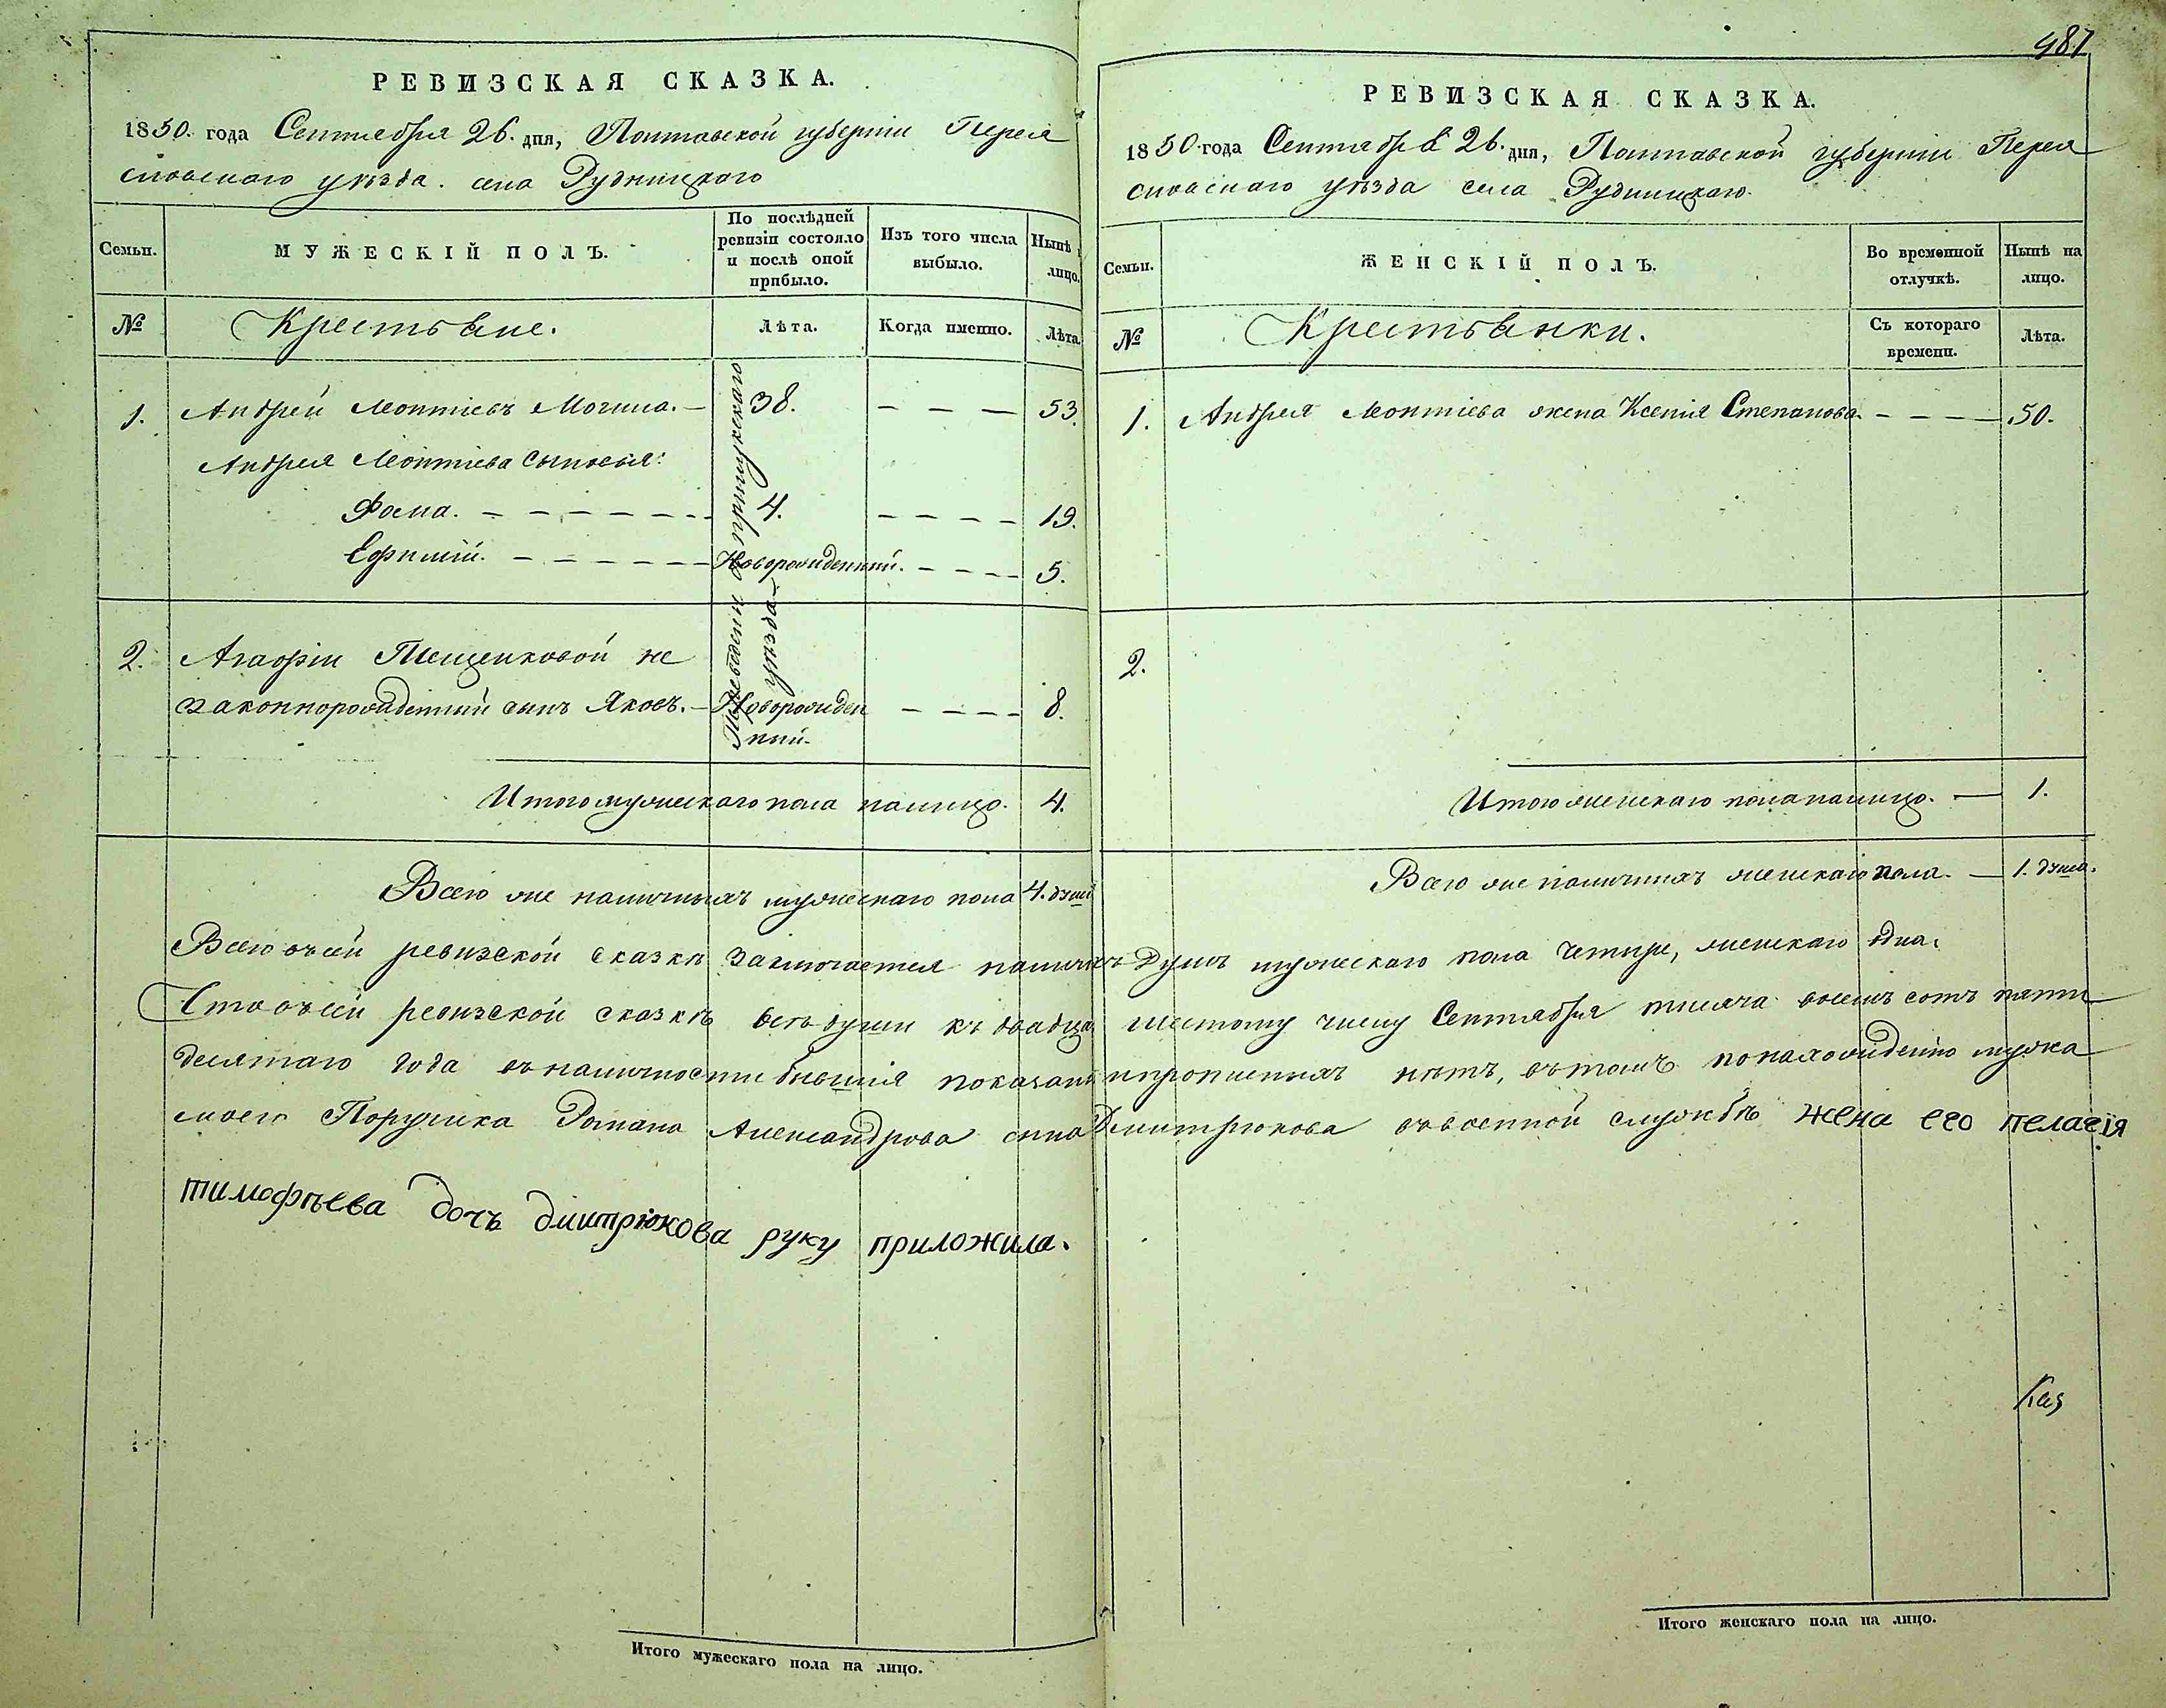 487
РЕВИЗСКАЯ СКАЗКА.
1850. года Септября 26. дня, Полтавской губерніи Перея
словскаго уѣзда. села Рудницкого
Семьи.
МУЖЕСКІЙ ПОЛЪ.
По послѣдней ревизіи состояло и послѣ оной прибыло.
Изъ того числа выбыло.
Нынѣ лицо.
№
Крестьяне.
Лѣта.
Когда именно.
Лѣта.
1. Андрей Леонтіевъ Могила. — 38. — — — 53.
Андрея Леонтіева сыновья:
Фома. — — — — — — 4. — — — — 19.
Ефимій. — — — — — Новорожденный. — — — — 5.
Переведены с прилукскаго
уѣзда
2. Агафіи Тещенковой не
законнорожденный сынъ Яковъ. — Новорожден — — — — 8.
ный.
Итого мужескаго пола налицо. 4.
Всего же наличныхъ мужескаго пола 4. души
РЕВИЗСКАЯ СКАЗКА.
1850 года Сентября 26. дня, Полтавской губерніи Перея
словскаго уѣзда села Рудницкаго.
Семьи.
ЖЕНСКІЙ ПОЛЪ.
Во временной отлучкѣ.
Нынѣ на лицо.
№
Крестьянки.
Съ котораго времени.
Лѣта.
1. Андрея Леонтіева жена Ксенія Степанова. — — — — 50.
2.
Итого женскаго пола налицо. — 1.
Всего же наличныхъ женскаго пола. — 1. душа.
Всего въ сей ревизской сказкѣ заключается наличныхъ душъ мужескаго пола четыре, женскаго одна.
Что въ сей ревизской сказкѣ всѣ души къ двадцать шестому числу Сентября тысяча восемь сотъ пяти
десятаго года въ наличности бывшія показаны и прописныхъ нѣтъ, въ томъ по нахожденію мужа
моего Поручика Романа Александрова сына Дмитрюкова въ военной службѣ жена его пелагія
тимофѣева дочъ дмитрюкова руку приложила.
Итого мужескаго пола на лицо.
Итого женскаго пола на лицо.